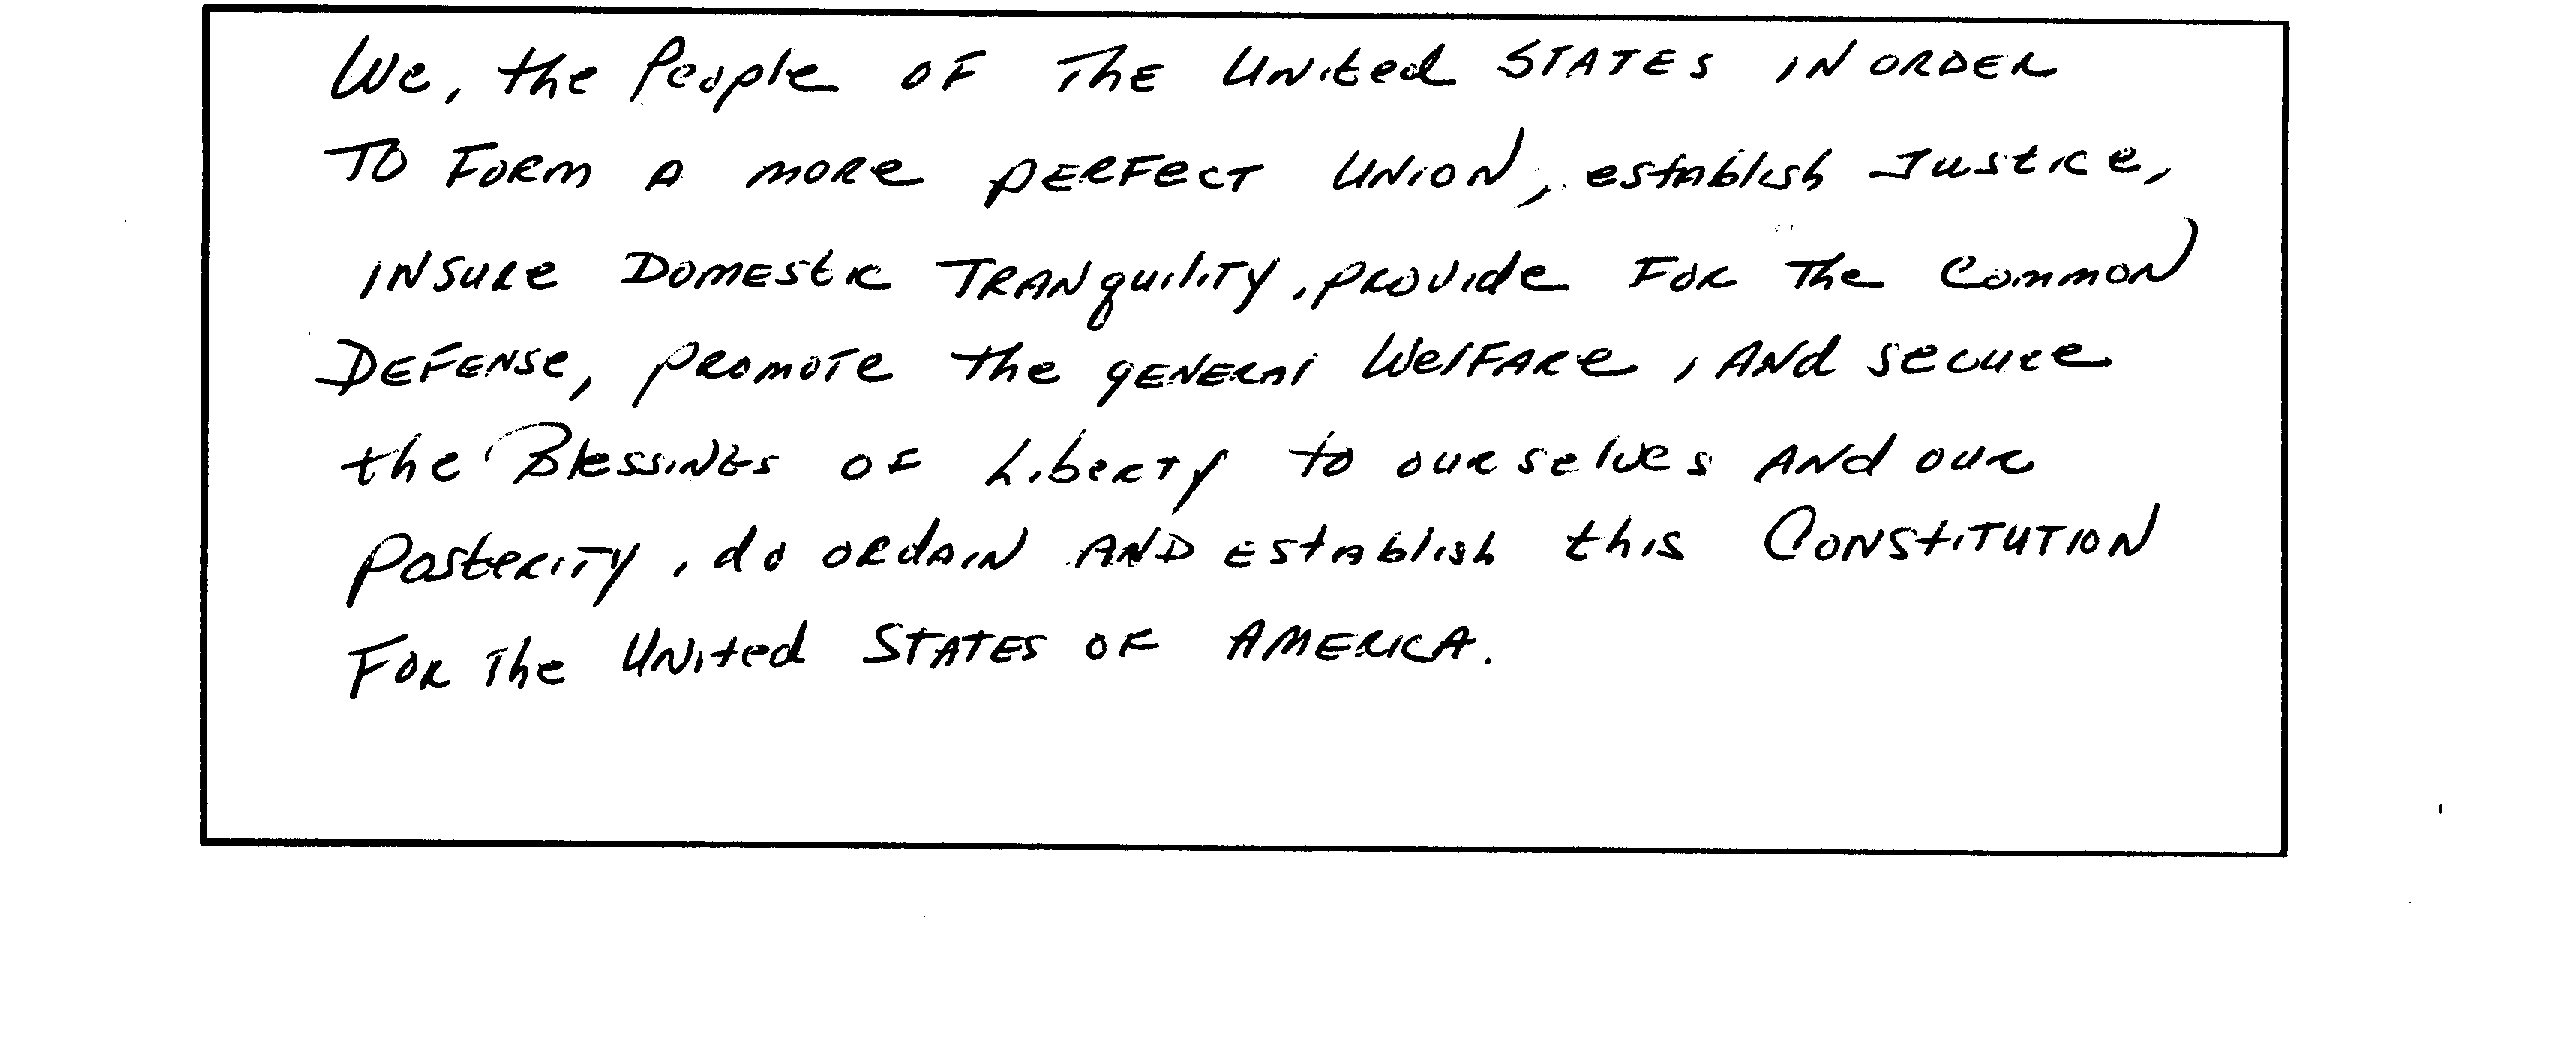 We, the People OF The United STATES IN ORDER
TO FORM A MORE PERFECT UNION, establish Justice,
INSURE DOMESTIC TRANquility, PROVIDE FOR The Common
DEFENSE, PROMOTE the GENERAl WelFARE, ANd secure
the Blessings OF Liberty to ourselves ANd our
Posterity, do ORdAIN AND Establish this CONSTITUTION
FOR The UNited STATES OF AMERICA.